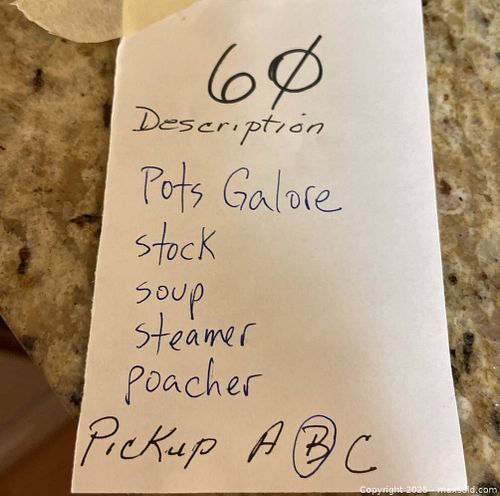 60
Description
Pots Galore
stock
soup
steamer
poacher
Pickup A B C
Copyright 2025 - maxsold.com